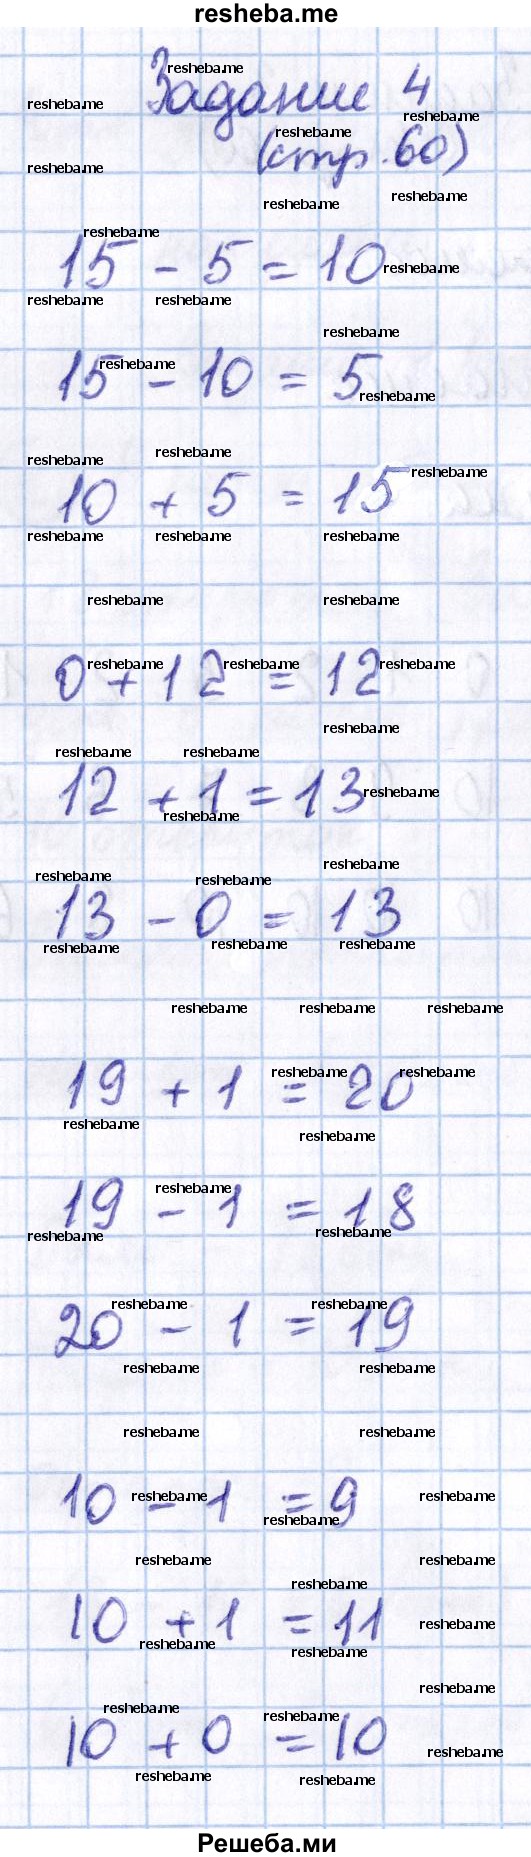 resheba.me
Задание 4
(стр. 60)
15 - 5 = 10
15 - 10 = 5
10 + 5 = 15
0 + 12 = 12
12 + 1 = 13
13 - 0 = 13
19 + 1 = 20
19 - 1 = 18
20 - 1 = 19
10 - 1 = 9
10 + 1 = 11
10 + 0 = 10
Решеба.ми